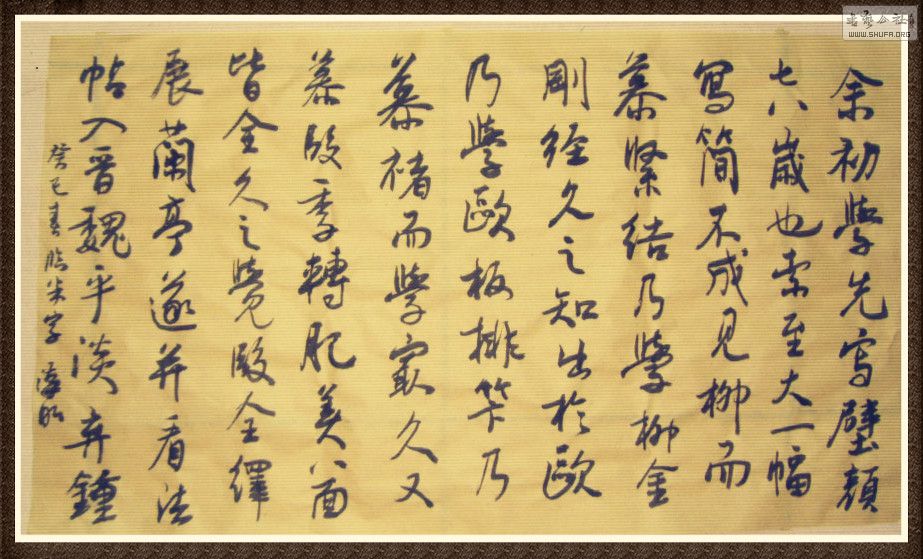 余初學先寫壁顏
七八歲也字至大一幅
寫簡不成見柳而
慕緊結乃學柳金
剛經久之知出於歐
乃學歐板排筭乃
慕褚而學寂久又
慕段季轉肥美八面
皆全久之覺段全繹
展蘭亭遂并看法
帖入晉魏平淡弃鍾
癸巳春臨米字
書藝公社
WWW.SHUFA.ORG